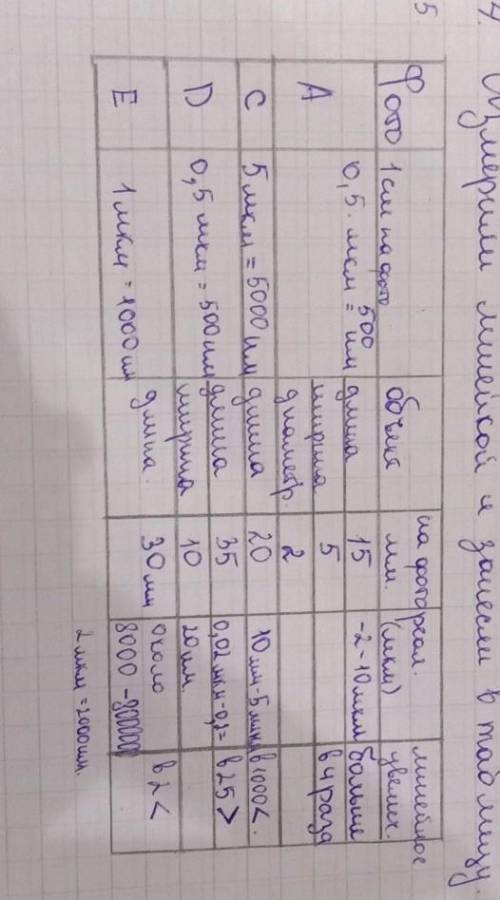 4. Измерили линейкой и занесли в таблицу.
5
Фото 1 см на фото объект на фото мм. реал. (мкм) линейное увелич.
А 0,5 мкм = 500 нм длина 15 -2-10 мкм больше
ширина 5 в 4 раза
диаметр. 2
С 5 мкм = 5000 нм длина 20 10 мм-5 мкм в 1000<.
D 0,5 мкм = 500 нм длина 35 0,02 мкм-0,2= в 25>
ширина 10 20 нм.
Е 1 мкм = 1000 нм длина. 30 мм около 8000 в 2<
2 мкм = 2000 нм.